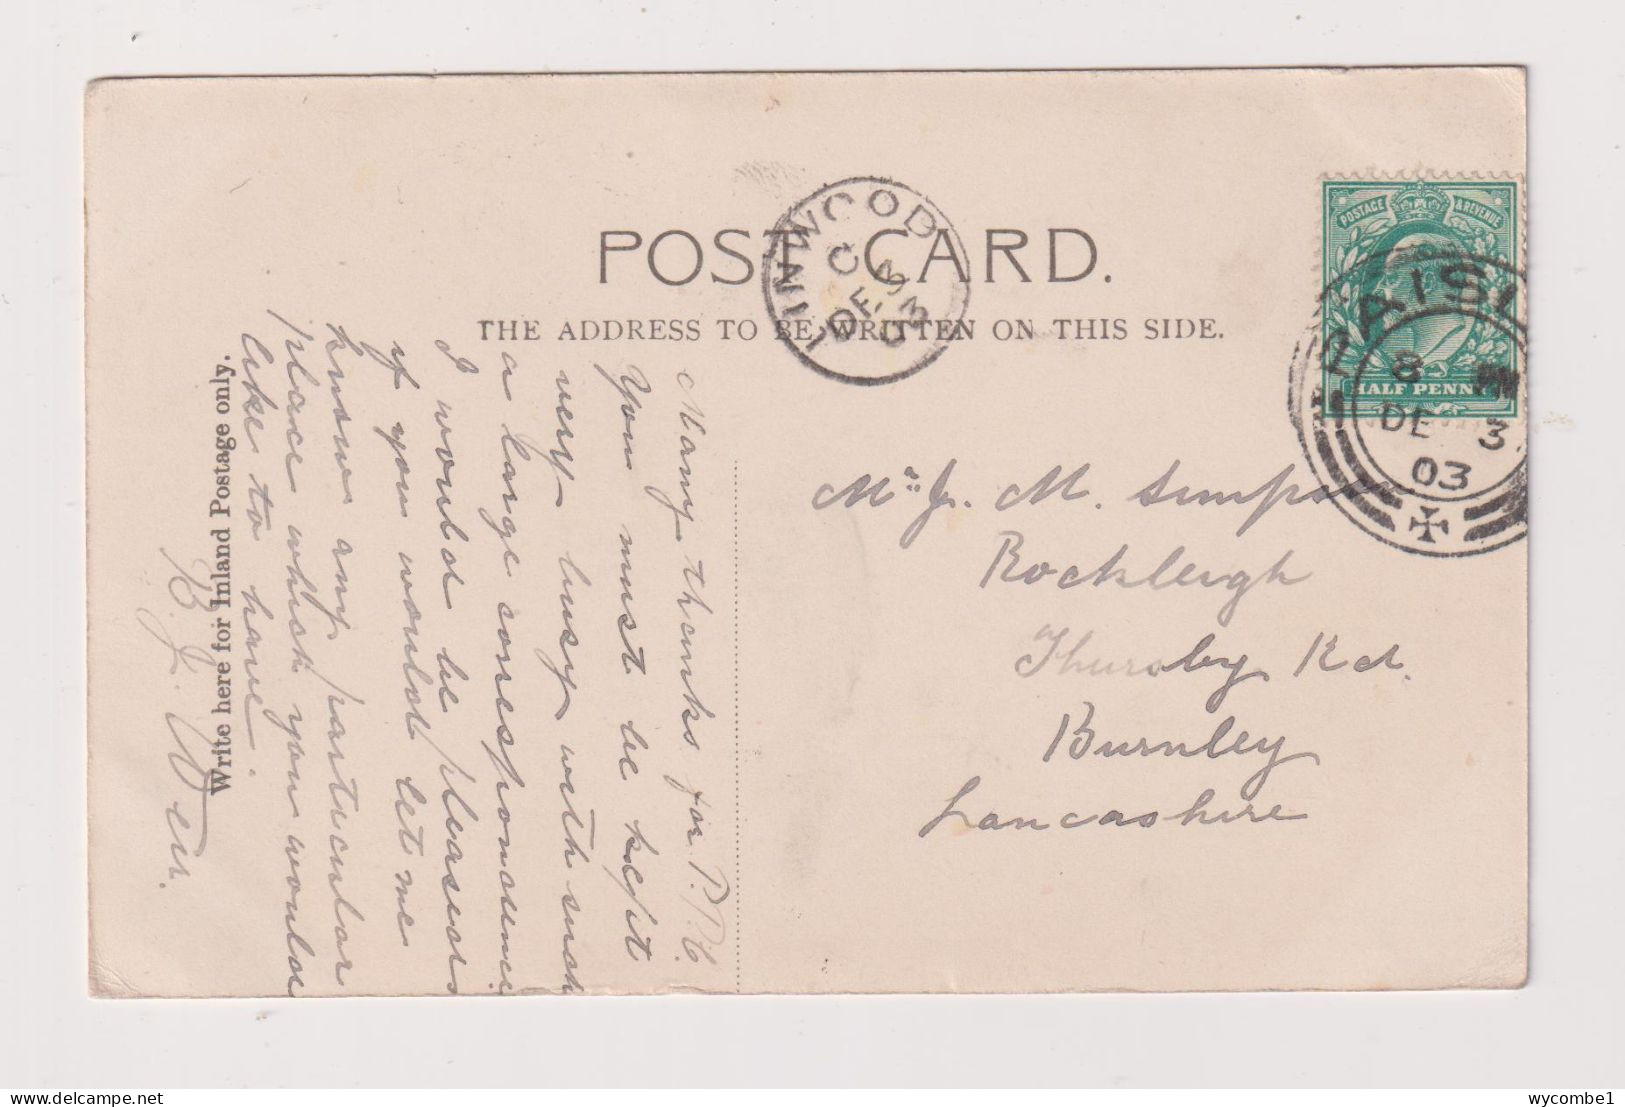 POST CARD.
THE ADDRESS TO BE WRITTEN ON THIS SIDE.
Write here for Inland Postage only.
LINWOOD
C
DE 3
03
POSTAGE & REVENUE
HALF PENNY
PAISL
8 PM
DE 3
03
Many thanks for P.P.C.
You must be kept
very busy with such
a large correspondence.
I would be pleased
if you would let me
know any particular
place which you would
like to have.
B. J. Weir.
Mr J. M. Simps
Rockleigh
Thursby Rd.
Burnley
Lancashire
wycombe1